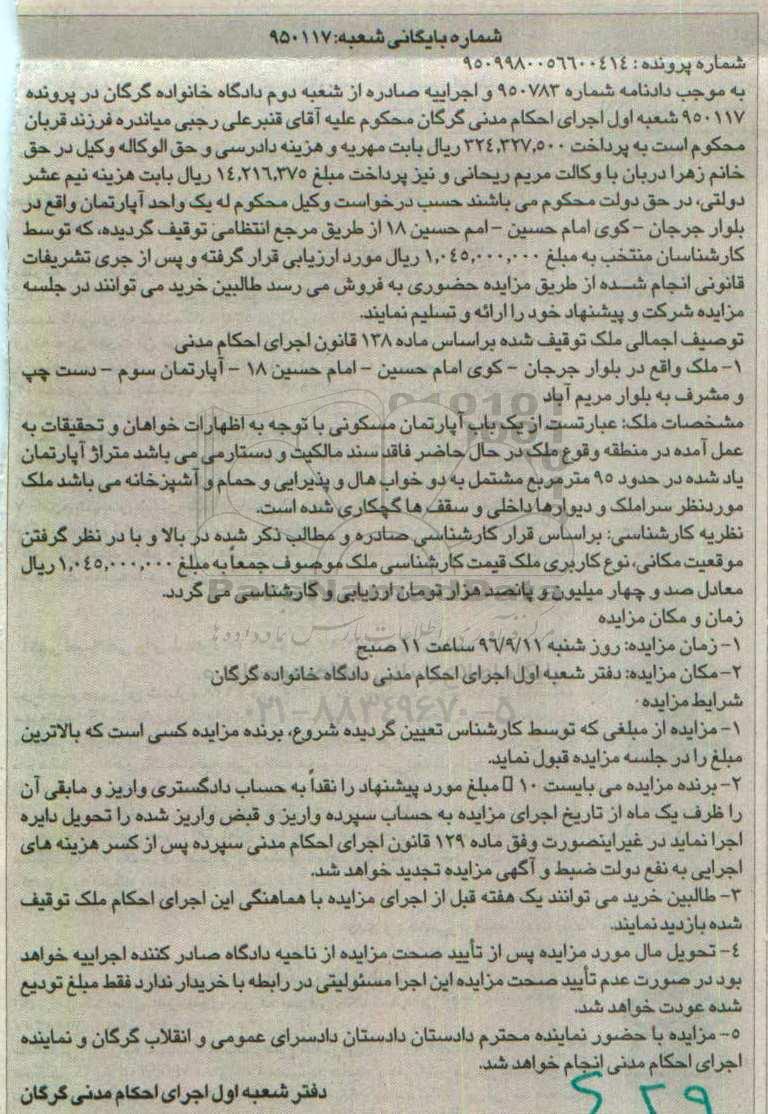 شماره بایگانی شعبه: ۹۵۰۱۱۷
شماره پرونده: ۹۵۰۹۹۸۰۰۵۶۶۰۰۴۱۴
به موجب دادنامه شماره ۹۵۰۷۸۳ و اجراییه صادره از شعبه دوم دادگاه خانواده گرگان در پرونده
۹۵۰۱۱۷ شعبه اول اجرای احکام مدنی گرگان محکوم علیه آقای قنبرعلی رجبی میاندره فرزند قربان
محکوم است به پرداخت ۳۲۴,۳۲۷,۵۰۰ ریال بابت مهریه و هزینه دادرسی و حق الوکاله وکیل در حق
خانم زهرا دربان با وکالت مریم ریحانی و نیز پرداخت مبلغ ۱۴,۲۱۶,۳۷۵ ریال بابت هزینه نیم عشر
دولتی، در حق دولت محکوم می باشند حسب درخواست وکیل محکوم له یک واحد آپارتمان واقع در
بلوار جرجان – کوی امام حسین – امم حسین ۱۸ از طریق مرجع انتظامی توقیف گردیده، که توسط
کارشناسان منتخب به مبلغ ۱,۰۴۵,۰۰۰,۰۰۰ ریال مورد ارزیابی قرار گرفته و پس از جری تشریفات
قانونی انجام شده از طریق مزایده حضوری به فروش می رسد طالبین خرید می توانند در جلسه
مزایده شرکت و پیشنهاد خود را ارائه و تسلیم نمایند.
توصیف اجمالی ملک توقیف شده براساس ماده ۱۳۸ قانون اجرای احکام مدنی
۱- ملک واقع در بلوار جرجان – کوی امام حسین – امام حسین ۱۸ – آپارتمان سوم – دست چپ
و مشرف به بلوار مریم آباد
مشخصات ملک: عبارتست از یک باب آپارتمان مسکونی با توجه به اظهارات خواهان و تحقیقات به
عمل آمده در منطقه وقوع ملک در حال حاضر فاقد سند مالکیت و دستارمی می باشد متراژ آپارتمان
یاد شده در حدود ۹۵ مترمربع مشتمل به دو خواب هال و پذیرایی و حمام و آشپزخانه می باشد ملک
موردنظر سراملک و دیوارها داخلی و سقف ها گچکاری شده است.
نظریه کارشناسی: براساس قرار کارشناسی صادره و مطالب ذکر شده در بالا و با در نظر گرفتن
موقعیت مکانی، نوع کاربری ملک قیمت کارشناسی ملک موصوف جمعاً به مبلغ ۱,۰۴۵,۰۰۰,۰۰۰ ریال
معادل صد و چهار میلیون و پانصد هزار تومان ارزیابی و کارشناسی می گردد.
زمان و مکان مزایده
۱- زمان مزایده: روز شنبه ۹۶/۹/۱۱ ساعت ۱۱ صبح
۲- مکان مزایده: دفتر شعبه اول اجرای احکام مدنی دادگاه خانواده گرگان
شرایط مزایده
۰۲۱-۸۸۳۴۹۶۷۰-۵
۱- مزایده از مبلغی که توسط کارشناس تعیین گردیده شروع، برنده مزایده کسی است که بالاترین
مبلغ را در جلسه مزایده قبول نماید.
۲- برنده مزایده می بایست ۱۰ مبلغ مورد پیشنهاد را نقداً به حساب دادگستری واریز و مابقی آن
را ظرف یک ماه از تاریخ اجرای مزایده به حساب سپرده واریز و قبض واریز شده را تحویل دایره
اجرا نماید در غیراینصورت وفق ماده ۱۲۹ قانون اجرای احکام مدنی سپرده پس از کسر هزینه های
اجرایی به نفع دولت ضبط و آگهی مزایده تجدید خواهد شد.
۳- طالبین خرید می توانند یک هفته قبل از اجرای مزایده با هماهنگی این اجرای احکام ملک توقیف
شده بازدید نمایند.
۴- تحویل مال مورد مزایده پس از تأیید صحت مزایده از ناحیه دادگاه صادر کننده اجراییه خواهد
بود در صورت عدم تأیید صحت مزایده این اجرا مسئولیتی در رابطه با خریدار ندارد فقط مبلغ تودیع
شده عودت خواهد شد.
۵- مزایده با حضور نماینده محترم دادستان دادستان دادسرای عمومی و انقلاب گرگان و نماینده
اجرای احکام مدنی انجام خواهد شد.
دفتر شعبه اول اجرای احکام مدنی گرگان